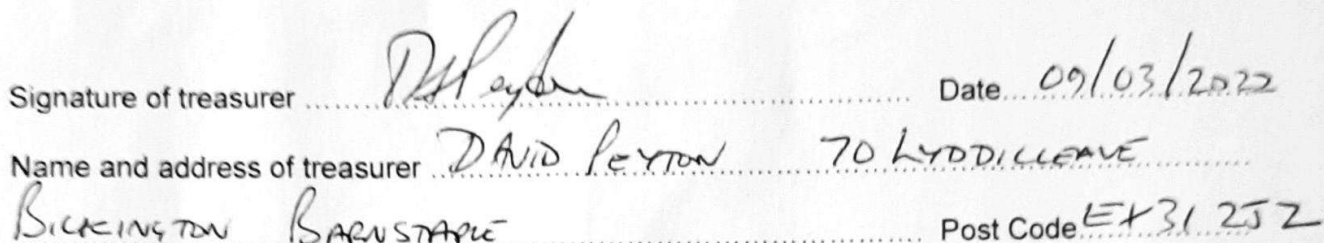 Signature of treasurer DHPeyton Date 09/03/2022
Name and address of treasurer DAVID PEYTON 70 LYDDICLEAVE
BICKINGTON BARNSTAPLE Post Code EX31 2JZ